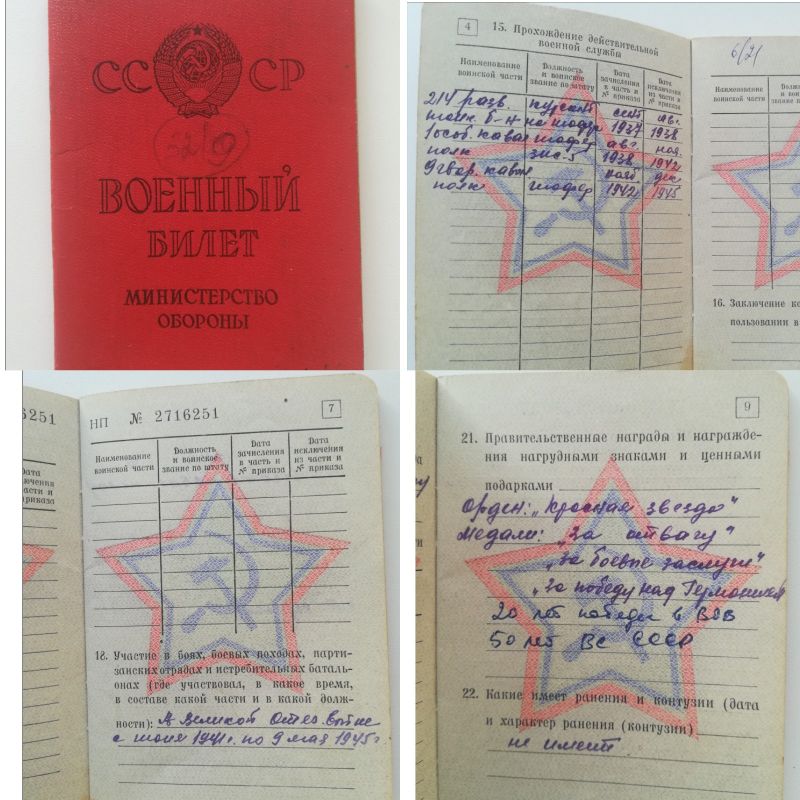 СССР
32/9
ВОЕННЫЙ
БИЛЕТ
МИНИСТЕРСТВО
ОБОРОНЫ
4
15. Прохождение действительной
военной службы
Наименование воинской части
Должность и воинское звание по штату
Дата зачисления в часть и № приказа
Дата исключения из части и № приказа
214 разв. курсант сент. авг.
б-н на шофер 1937 1938
1 особ. кавал шофер авг. ноя.
полк ЗИС-5 1938 1942
9 гвар. кавал нояб дек
полк шофер 1942 1945
6/21
Наименование воинской части
16. Заключение
пользовании в
5251
НП № 2716251
7
Наименование воинской части
Должность и воинское звание по штату
Дата зачисления в часть и № приказа
Дата исключения из части и № приказа
18. Участие в боях, боевых походах, парти-
занских отрядах и истребительных баталь-
онах (где участвовал, в какое время,
в составе какой части и в какой долж-
ности): В Великой Отеч. войне
с июня 1941 г. по 9 мая 1945 г
9
21. Правительственные награды и награжде-
ния нагрудными знаками и ценными
подарками
Орден: „Красная звезда"
Медали: „За отвагу"
„За боевые заслуги"
„За победу над Германией
20 лет победы в ВОВ
50 лет ВС СССР
22. Какие имеет ранения и контузии (дата
и характер ранения (контузии)
не имеет